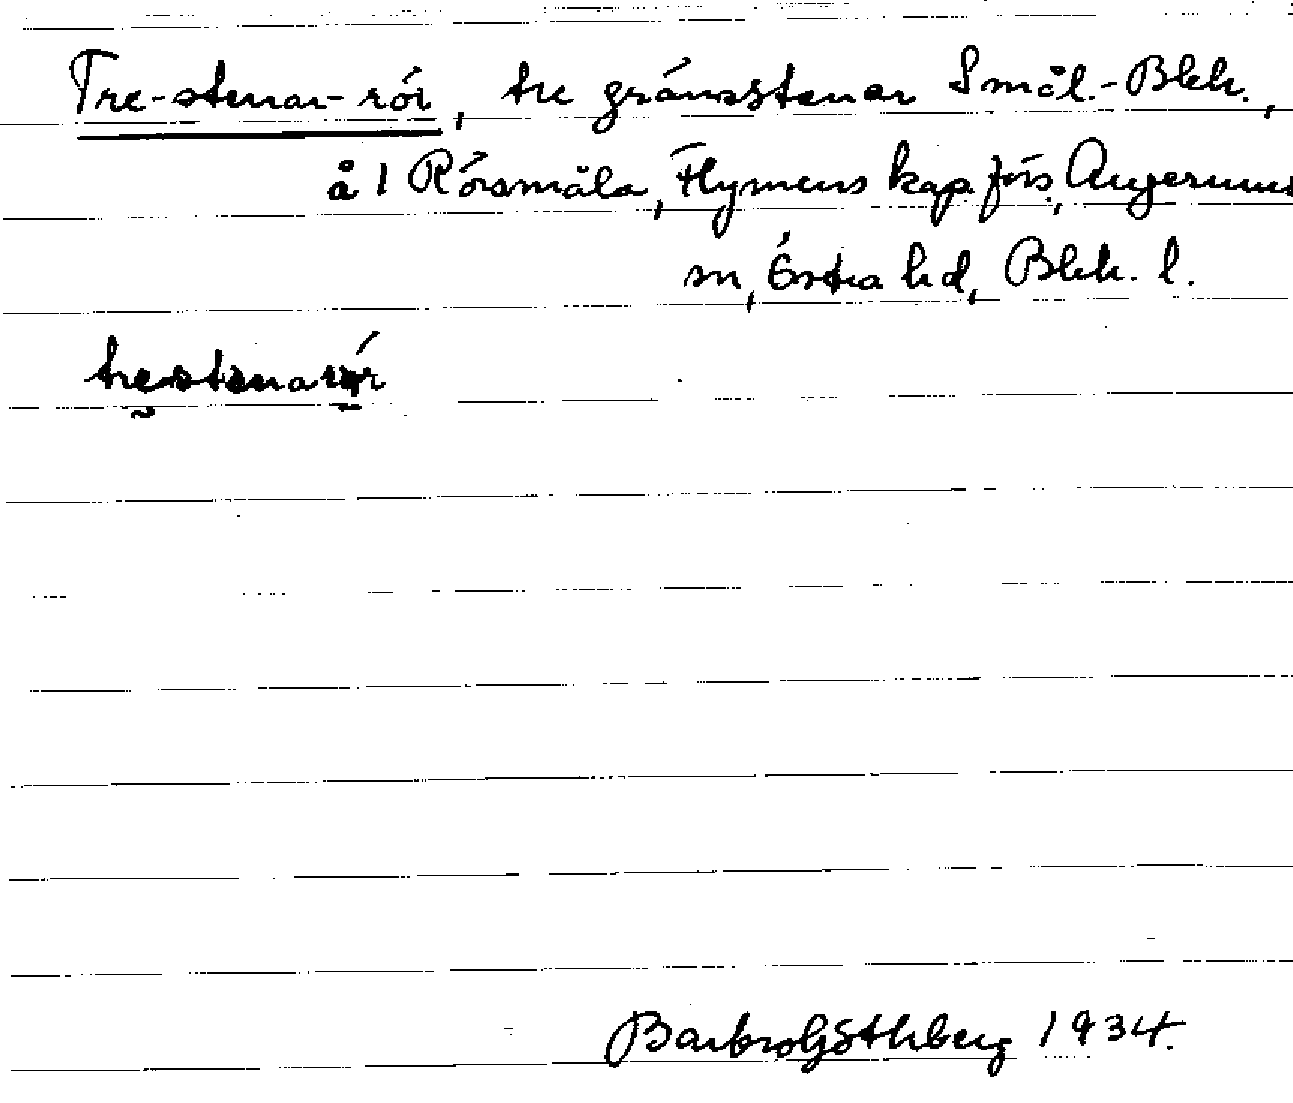 Tre-stenar-rör, tre gränsstenar Smål.-Blek.,
å 1 Rörsmåla, Flymens kap.förs., Augerums
sn, Östra hd, Blek. l.
trestenarör
Barbro Göthberg 1934.